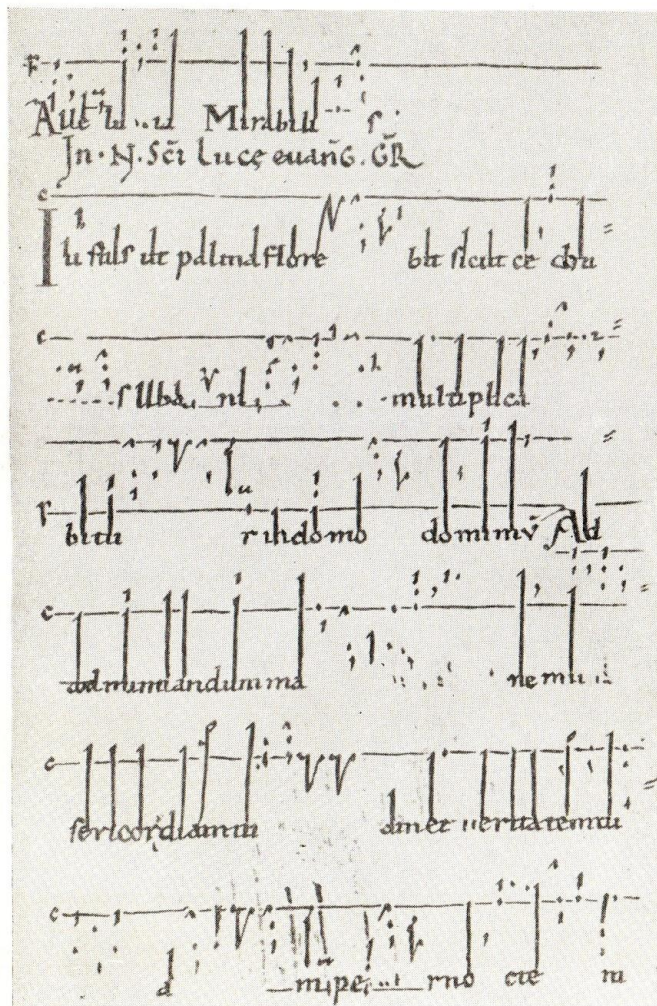 Alle lu ia Mirabili s
In. N. Sci Luce evang. GR
Iustus ut palma flore bit sicut ce dru
s liba ni multiplica
bitu r in domo domini Ad
ad nuntiandum ma ne mi
sericordiam tu am et veritatem tu
a m per no cte m